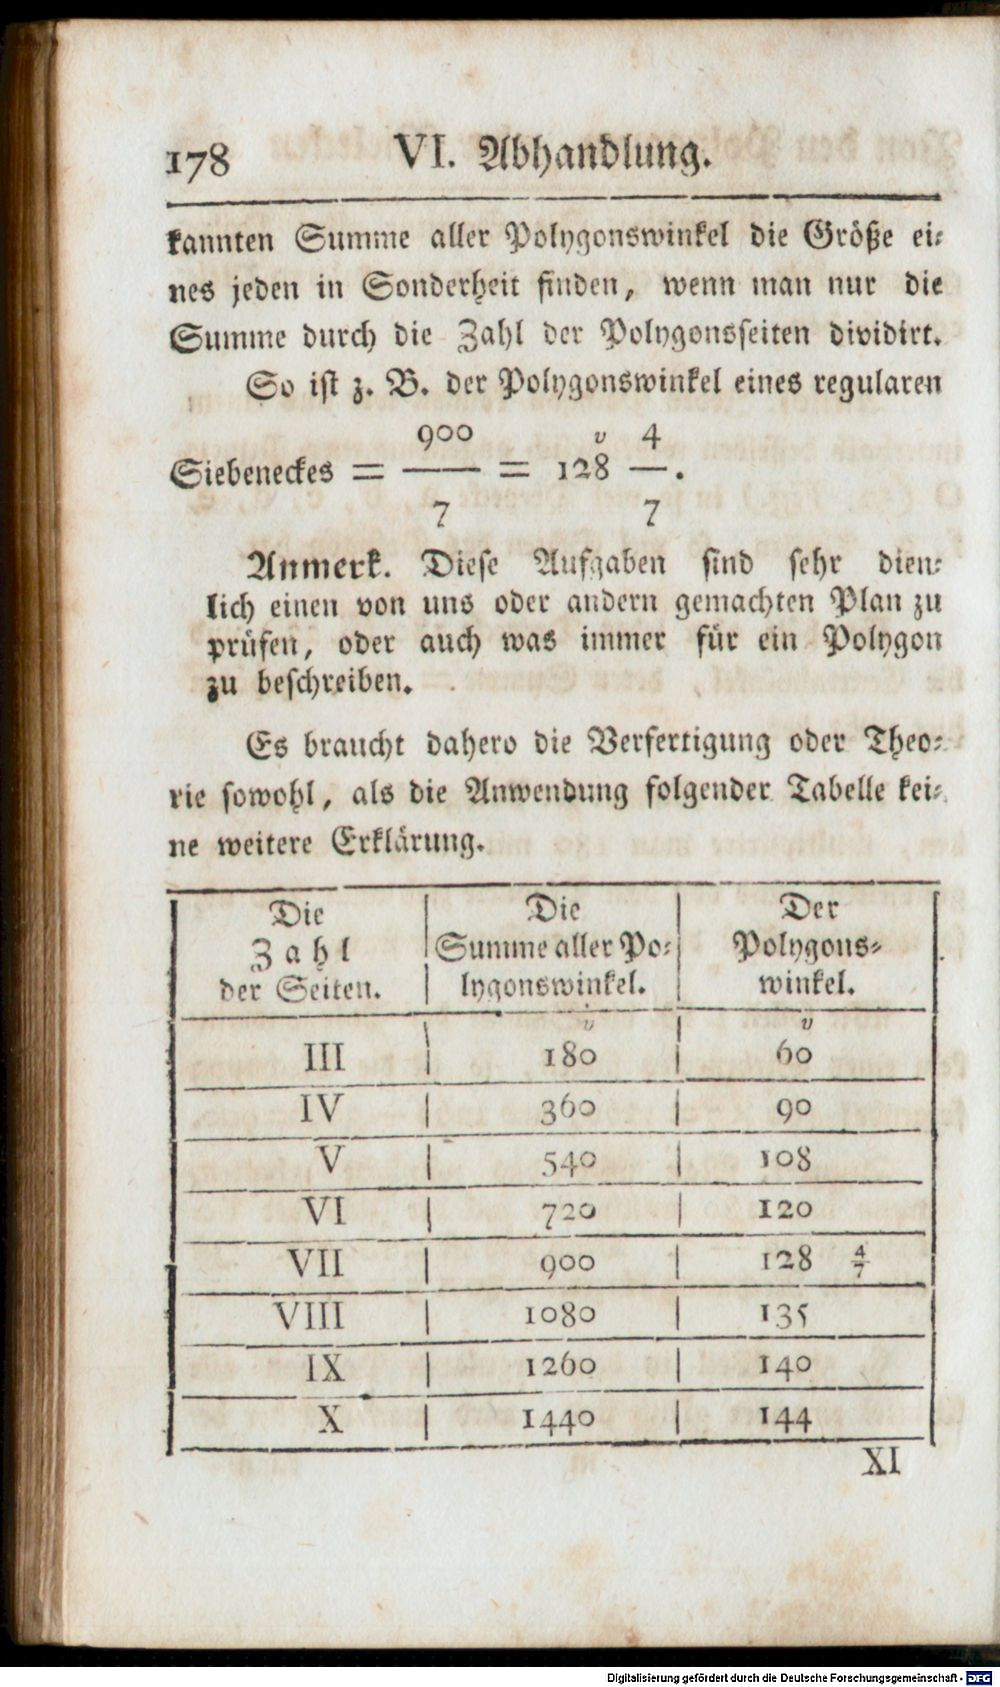 178 VI. Abhandlung.
kannten Summe aller Polygonswinkel die Größe ei⸗
nes jeden in Sonderheit finden, wenn man nur die
Summe durch die Zahl der Polygonsseiten dividirt.
So ist z. B. der Polygonswinkel eines regularen
900 v 4
Siebeneckes = — = 128 —.
7 7
Anmerk. Diese Aufgaben sind sehr dien⸗
lich einen von uns oder andern gemachten Plan zu
prüfen, oder auch was immer für ein Polygon
zu beschreiben.
Es braucht dahero die Verfertigung oder Theo⸗
rie sowohl, als die Anwendung folgender Tabelle kei⸗
ne weitere Erklärung.
Die | Die | Der
Zahl | Summe aller Po⸗ | Polygons⸗
der Seiten. | lygonswinkel. | winkel.
v v
III | 180 | 60
IV | 360 | 90
V | 540 | 108
VI | 720 | 120
VII | 900 | 128 4/7
VIII | 1080 | 135
IX | 1260 | 140
X | 1440 | 144
XI
Digitalisierung gefördert durch die Deutsche Forschungsgemeinschaft - DFG